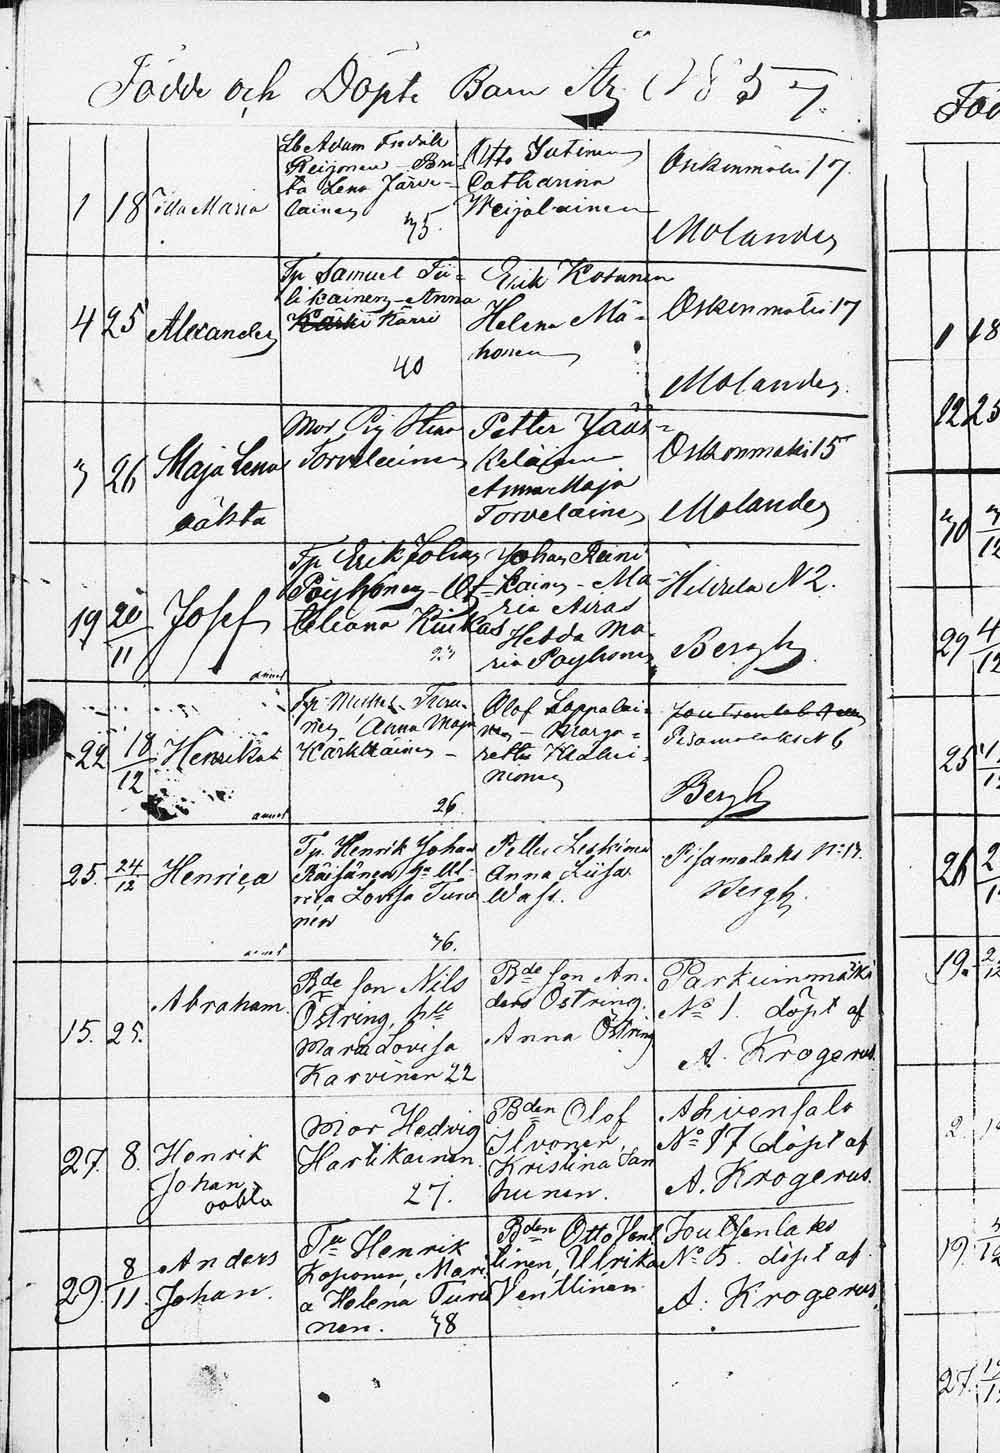 Födde och Döpte Barn År 1857.
1 18 Maria
Adam Fredrik
Reijonen - Bri-
ta Lena Järve-
lainen
35.
Otto Sutinen
Catharina
Weijalainen
17
Molander
4 25 Alexander
Tp Samuel Tii-
likainen - Anna
Kärri
40
Erik Kosunen
Helena Mä-
honen
Oskenmäki 17
Molander.
3 26 Maja Lena
oäkta
Mor Pig Stina
Torvelainen
Petter Jääs-
keläinen
Anna Maja
Torvelainen
Oskonmäki 15
Molander
19 20/11 Josef
Tp Erik Johan
Pöyhönen -
Eleona Kiukas
23
Johan Reini-
kainen - Ma-
ria Airas
Hedda Ma-
ria Pöyhönen
N 2.
Bergh
annot
22 18/12 Henrika
Tp Mickel
Anna Maja
Kärkkäinen -
26.
Olof Lappalai-
nen - Marga-
retta
nonen
Pisamalaks N 6
Bergh
annot
25. 24/12 Henrica
Tp. Henrik Johan
Räisänen Ul-
rica Lovisa Turu-
nen
36.
Petter Leskinen
Anna Liisa
Wass.
Pisamalaks N:
Bergh
annot
15. 25. Abraham.
Bde son Nils
Östring, hu
Maria Lovisa
Karvinen 22
Bde son An-
ders Östring.
Anna Östring
Parkuinmäki
No 1. döpt af
A. Krogerus.
27. 8. Henrik
Johan
oäkta
Mor Hedvig
Hartikainen.
27.
Bden Olof
Ilvonen
Kristina Jan
hunen.
Ahvensalo
No 17 döpt af
A. Krogerus.
29. 8/11. Anders
Johan.
Henrik
Koponen, Mari-
a Helena Turu
nen. 38
Bden Otto Vent
tinen, Ulrika
Venttinen
Joutsenlaks
No 5. döpt af
A. Krogerus.
1 18
12 25
30
29 4/12
25
26
19.
2.
19
27.